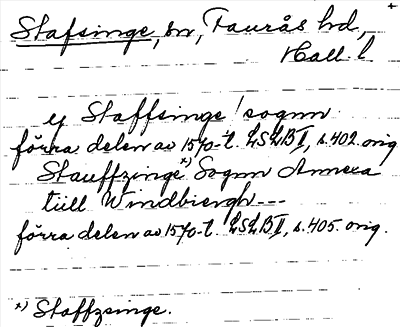 Stafsinge, sn, Faurås hd,
Hall. l.
+
ij Staffsinge! sognn
förra delen av 1540-t. LSLB II, s. 402. orig
Stauffzinge *) Sognn Annexa
tiill Windbiergh ---
förra delen av 1540-t. LSLB II, s. 405. orig.
*) Staffzsinge.